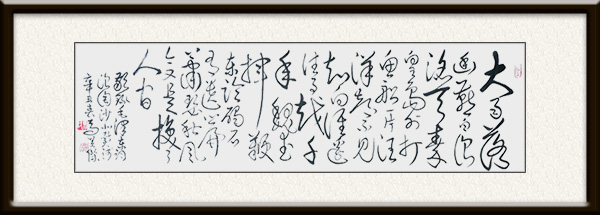 大雨落
幽燕白浪
滔天秦
皇岛外打
鱼船一片汪
洋都不见
知向谁边
往事越千
年魏武
挥鞭
东临碣石
有遗篇
萧瑟秋风
今又是换了
人间
毛泽东词
浪淘沙北戴河
辛丑